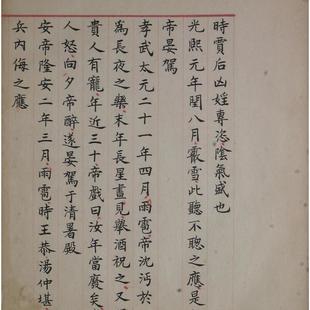 時賈后凶婬專恣陰氣盛也
光熙元年閏八月霰雪此聽不聰之應是
帝晏駕
孝武太元二十一年四月雨雹帝沈沔於
為長夜之樂末年長星晝見舉酒祝之又
貴人有寵年近三十帝戲曰汝年當廢矣
人怒向夕帝醉遂晏駕于清暑殿
安帝隆安二年三月雨雹時王恭湯仲堪
兵内侮之應